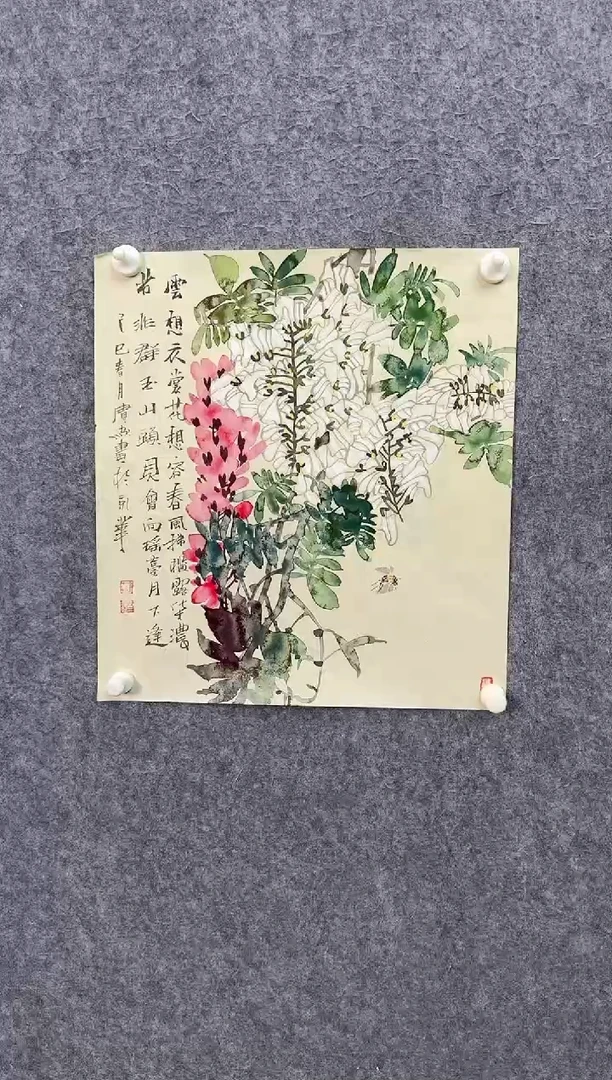 雲想衣裳花想容春風拂檻露華濃
若非群玉山頭見會向瑤臺月下逢
巳春月